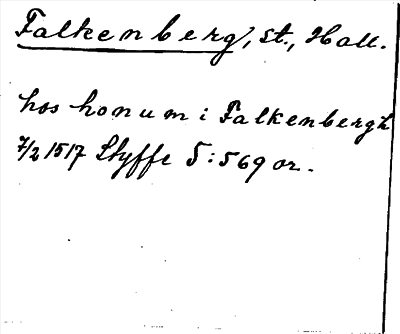 Falkenberg, st., Hall.
hos honum i Falkenbergh
7/2 1517 Styffe 5:569 or.